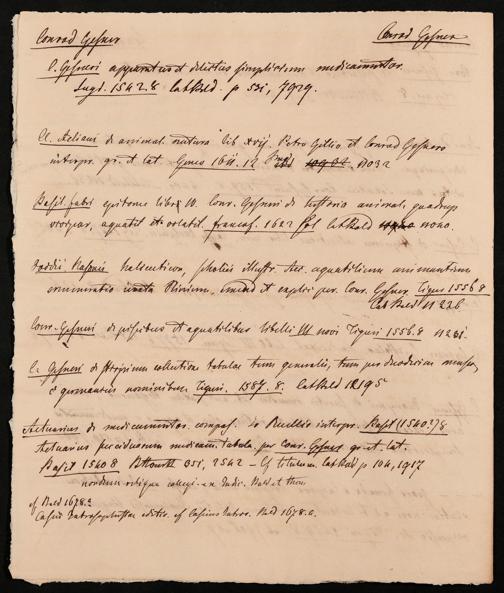 Conrad Gesner Conrad Gesner
C. Gesneri apparatus et delectus simplicium medicamentor.
Lugd. 1542. 8 Cat. Bald. p 531, 7929.
Cl. Aeliani de animal. natura lib XVII. Petro Gilio et Conrad Gesnero
interpr. gr. et lat Genev 1611. 12 11032
Basil. fabri epitome libr IV. Conr. Gesneri de historia animal. quadrup
vivipar, aquatil et volatil. francof. 1622 fol Cat Bald 11020.
Ovidii Nasonis halieuticon, scholiis illustr. Acc. aquatilium animantium
enumeratio Plinium, emend et explic per. Conr. Gesner Tiguri 1556. 8
Cat Bald 11226
Conr. Gesneri de piscibus et aquatilibus libelli III novi Tiguri 1556. 8 11231.
C. Gesneri de stirpium collectione tabulae tum generalis, tum per duodecim menses,
c germanicis nominibus Tiguri. 1587. 8. Cat Bald 12195
Actuarius de medicamentor. compos. Jo Ruellio interpr. Basil 1540. 78
per Conr. Gesner gr. et. lat.
Basil 1540 8 351, 2542 — Cf titulum Cat Bald p 104, 1917
nondum
cf Bald 1678. 2
editio. cf Cassius Bald 1678. 6.